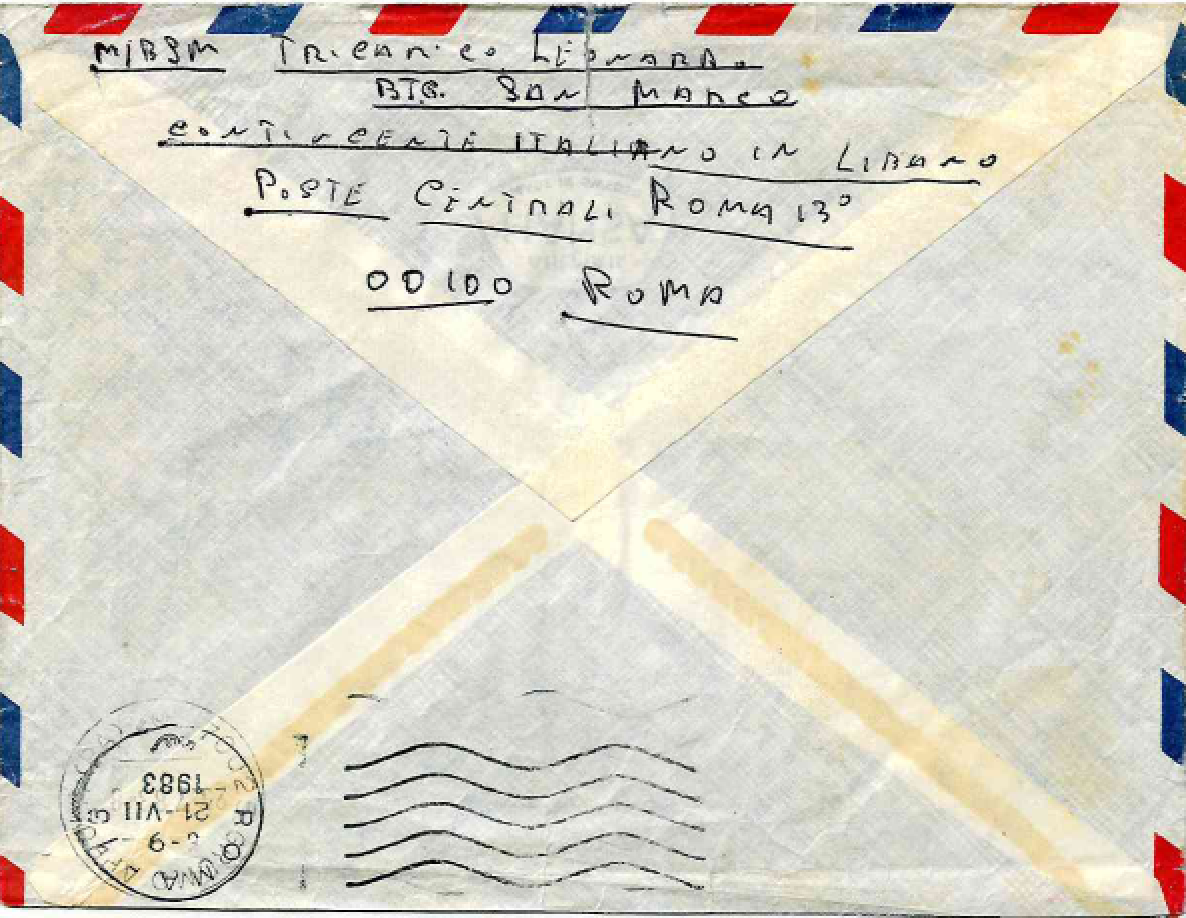 M/BSM TRICARICO LEONARDO
BTG. SAN MARCO
CONTINGENTE ITALIANO IN LIBANO
POSTE CENTRALI ROMA 13°
00100 ROMA
9-
21-VII
1983